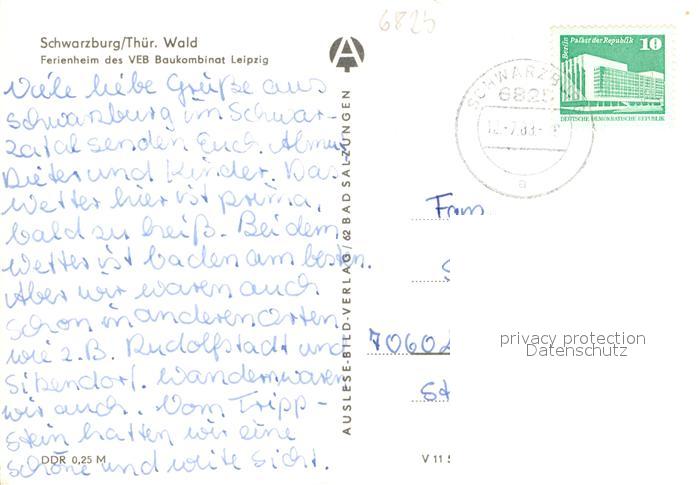 6825
Schwarzburg/Thür. Wald
Ferienheim des VEB Baukombinat Leipzig
Viele liebe Grüße aus
Schwarzburg im Schwar-
zatal senden Euch
Dieter und Kinder. Das
Wetter hier ist prima,
bald zu heiß. Bei dem
Wetter ist baden am besten.
Aber wir waren auch
schon in anderen Orten
wie z.B. Rudolfstadt und
Sitzendorf. Wandern waren
wir auch. Vom Tripp-
stein hatten wir eine
schöne und weite Sicht.
DDR 0,25 M
AUSLESE-BILD-VERLAG / 62 BAD SALZUNGEN
A
SCHWARZB
6825
a
Berlin Palast der Republik 10
DEUTSCHE DEMOKRATISCHE REPUBLIK
Fam
S
7060
St
V 11 5
privacy protection
Datenschutz